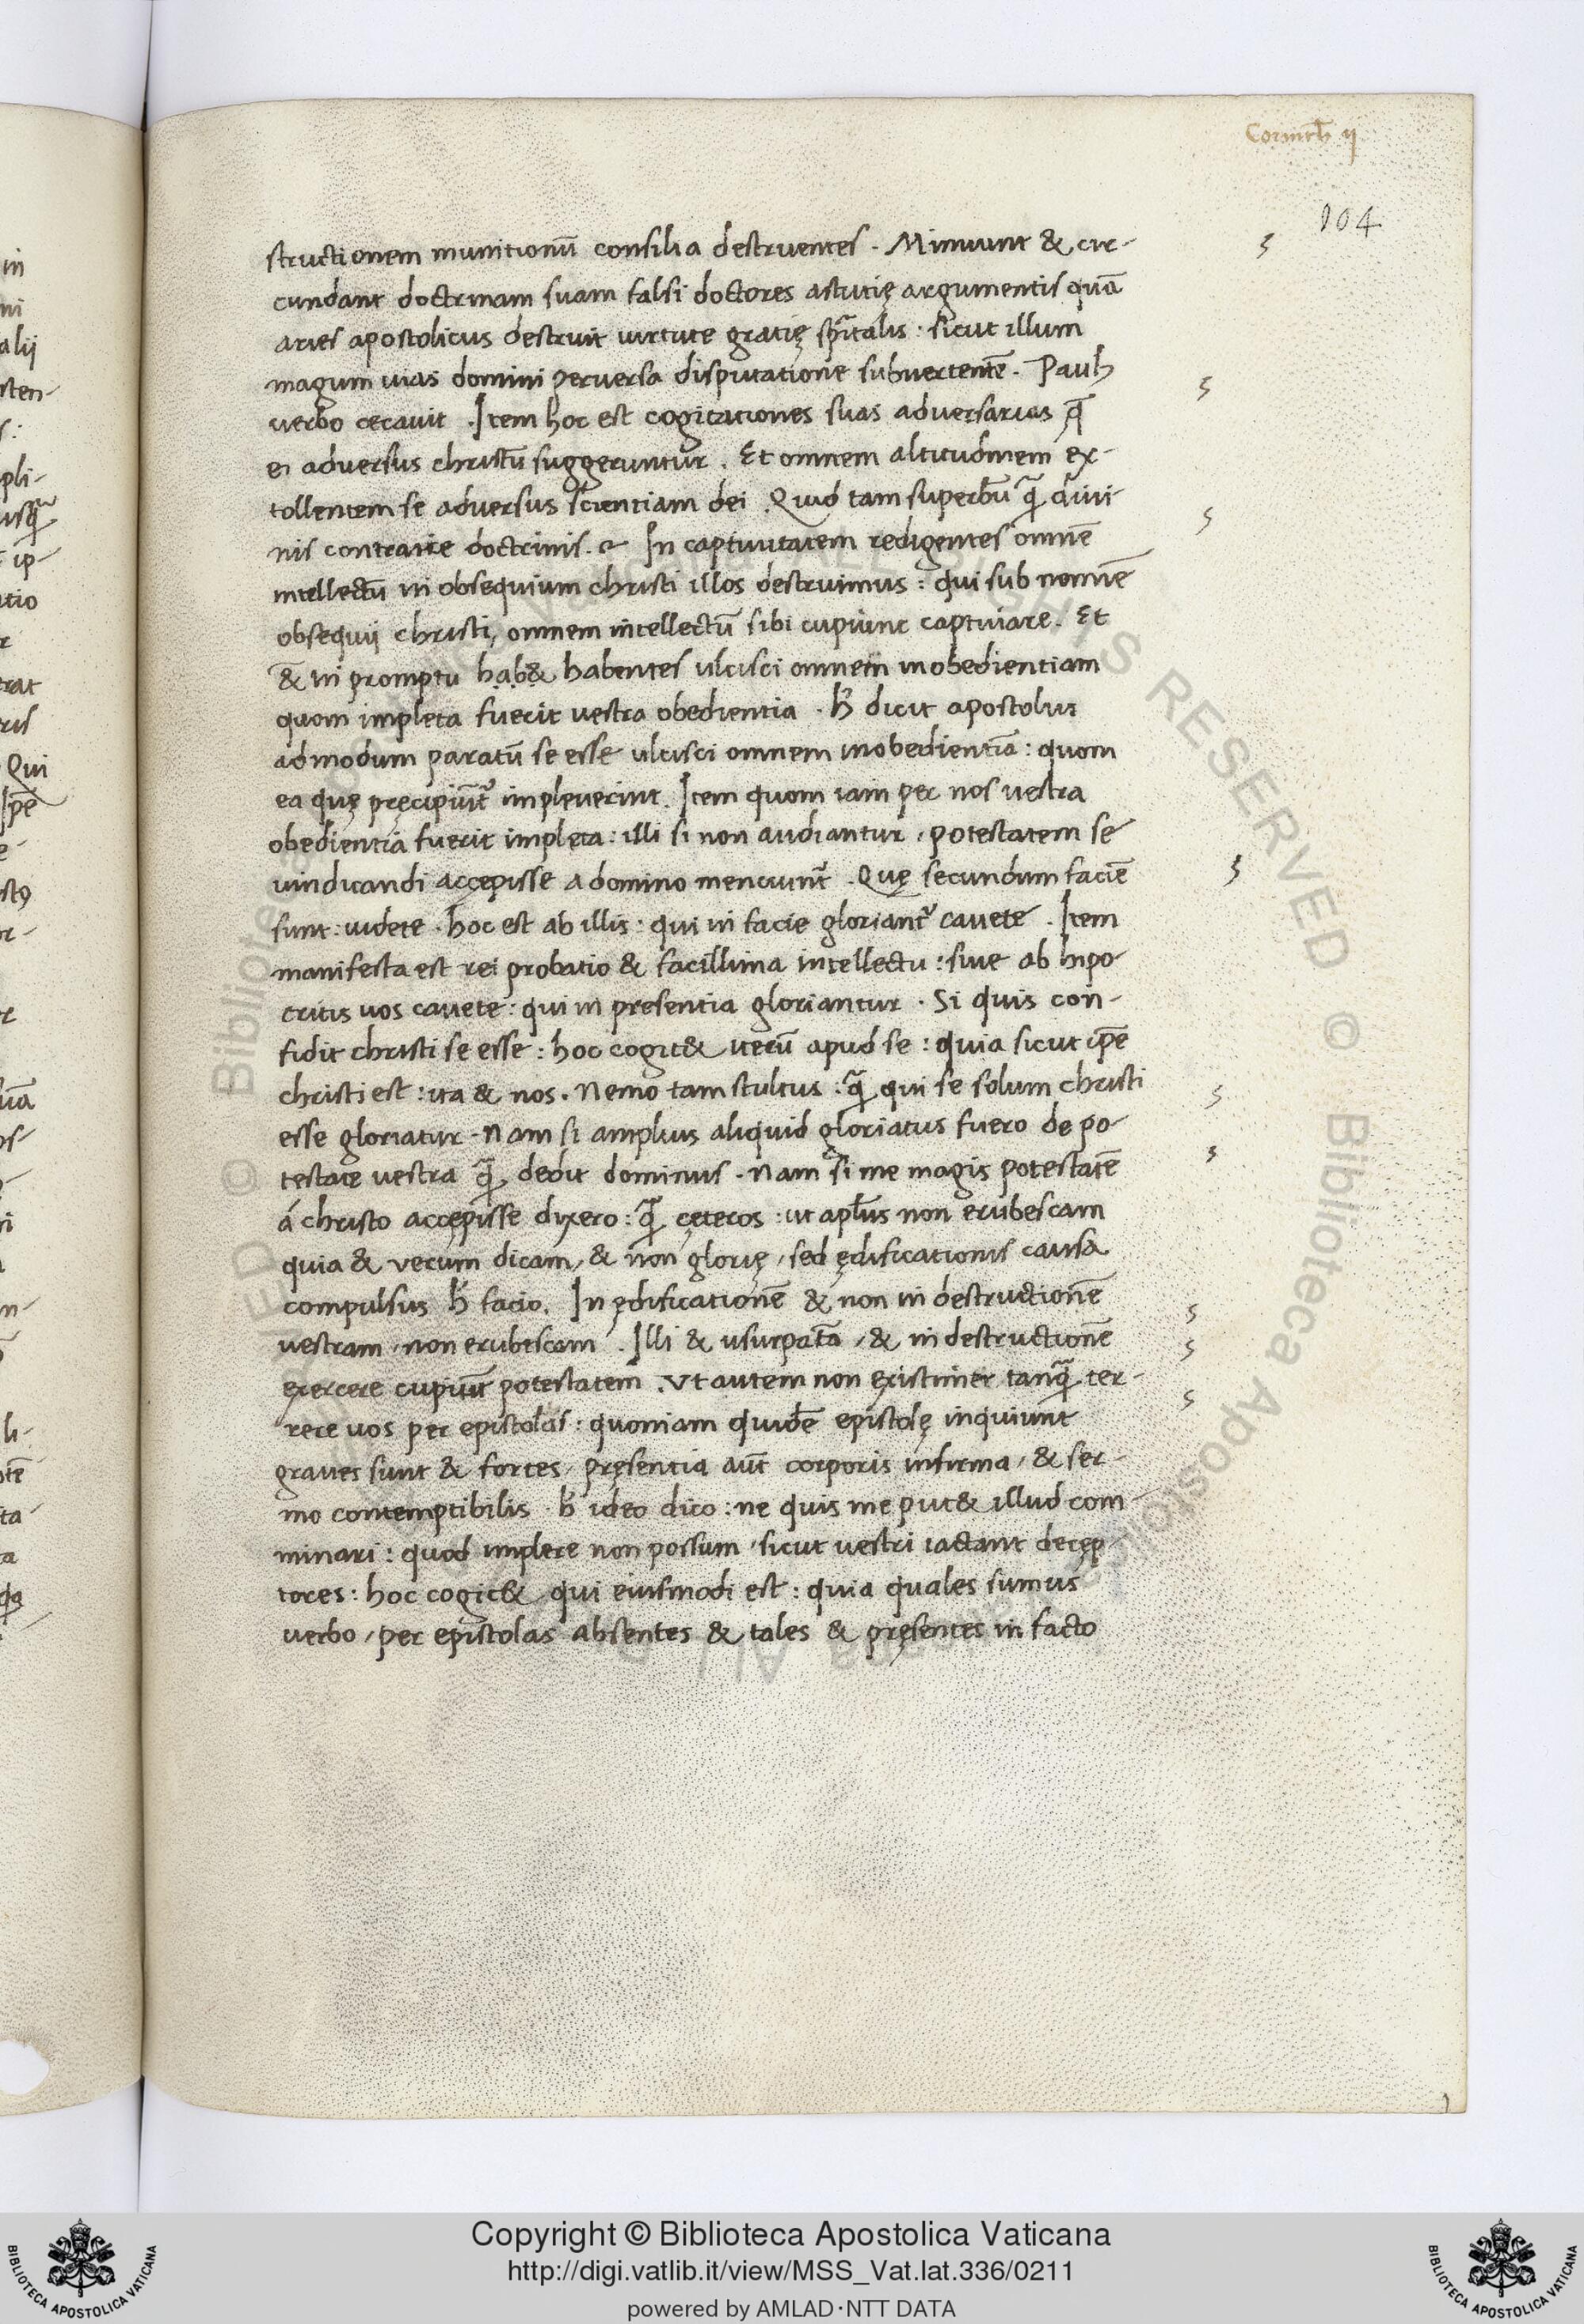 Corinth̄ ij
104
structionem munitionū consilia destruentes . Minuunt & cir-
cundant doctrinam suam falsi doctores astutię argumentis quā
aries apostolicus destruit uirtute gratię sp̄italis : sicut illum
magum uias domini perversa disputatione subuertentē . Paulꝰ
uerbo cecauit . Item hoc est cogitationes suas adversarias q̄
ei adversus christū suggeruntur . Et omnem altitudinem ex-
tollentem se adversus scientiam dei . Quid tam superbū q̄ diui-
nis contraire doctrinis . In captiuitatem redigentes omnē
intellectū in obsequium christi illos destruimus : qui sub nomine
obsequij christi , omnem intellectū sibi cupiunt captiuare . Et
& in promptu hab& habentes ulcisci omnem inobedientiam
quom impleta fuerit vestra obedientia . h̄ dicit apostolus
admodum paratū se esse ulcisci omnem inobedientiā : quom
ea quę pręcipiunt̄ impleuerint . Item quom iam per nos vestra
obedientia fuerit impleta : illi si non audiantur , potestatem se
uindicandi accepisse a domino mentiunt̄ . Quę secundum faciē
sunt : uidete . hoc est ab illis : qui in facie gloriant̄ cauete . Item
manifesta est rei probatio & facillima intellectu : siue ab hipo-
critis uos cauete : qui in presentia gloriantur . Si quis con-
fidit christi se esse : hoc cogit& iterū apud se : quia sicut ip̄e
christi est : ita & nos . Nemo tam stultus : q̄ qui se solum christi
esse gloriatur . Nam si amplius aliquid gloriatus fuero de po-
testate vestra q̄ dedit dominus . Nam si me magis potestatē
á christo accępisse dixero : q̄ cęteros : ut apl̄us non erubescam
quia & verum dicam , & non glorię , sed ędificationis causa
compulsus h̄ facio . In ędificationē & non in destructionē
uestram , non erubescam . Illi & usurpatā , & in destructionē
exercere cupiunt potestatem . Ut autem non existimer tanq̄ ter-
rere uos per epistolas : quoniam quidē epistolę inquiunt
graues sunt & fortes , pręsentia aūt corporis infirma , & ser-
mo contemptibilis . h̄ ideo dico : ne quis me put& illud com-
minari : quod implere non possum , sicut vestri iactant decęp-
tores : hoc cogit& qui eiusmodi est : quia quales sumus
uerbo , per epistolas absentes & tales & pręsentes in facto
Copyright © Biblioteca Apostolica Vaticana
http://digi.vatlib.it/view/MSS_Vat.lat.336/0211
powered by AMLAD·NTT DATA